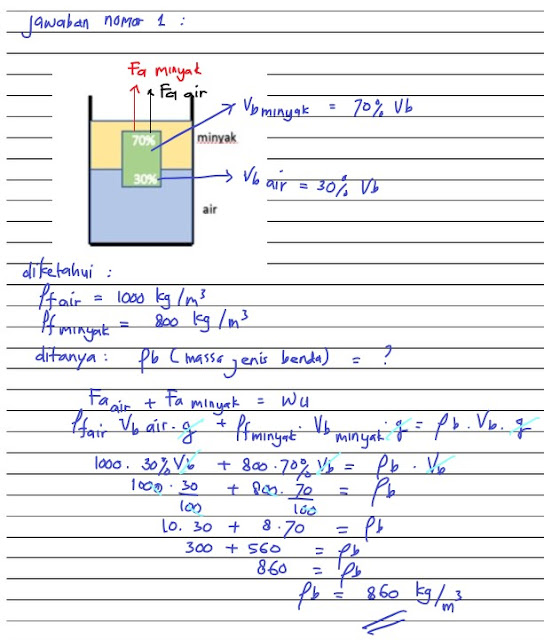 jawaban nomor 1 :
Fa minyak
Fa air
Vb minyak = 70% Vb
70%
minyak
30%
Vb air = 30% Vb
air
diketahui :
ρf air = 1000 kg/m³
ρf minyak = 800 kg/m³
ditanya : ρb (massa jenis benda) = ?
Fa air + Fa minyak = wu
ρf air Vb air . g + ρf minyak . Vb minyak . g = ρb . Vb . g
1000 . 30% Vb + 800 . 70% Vb = ρb . Vb
1000 . 30/100 + 800 . 70/100 = ρb
10 . 30 + 8 . 70 = ρb
300 + 560 = ρb
860 = ρb
ρb = 860 kg/m³